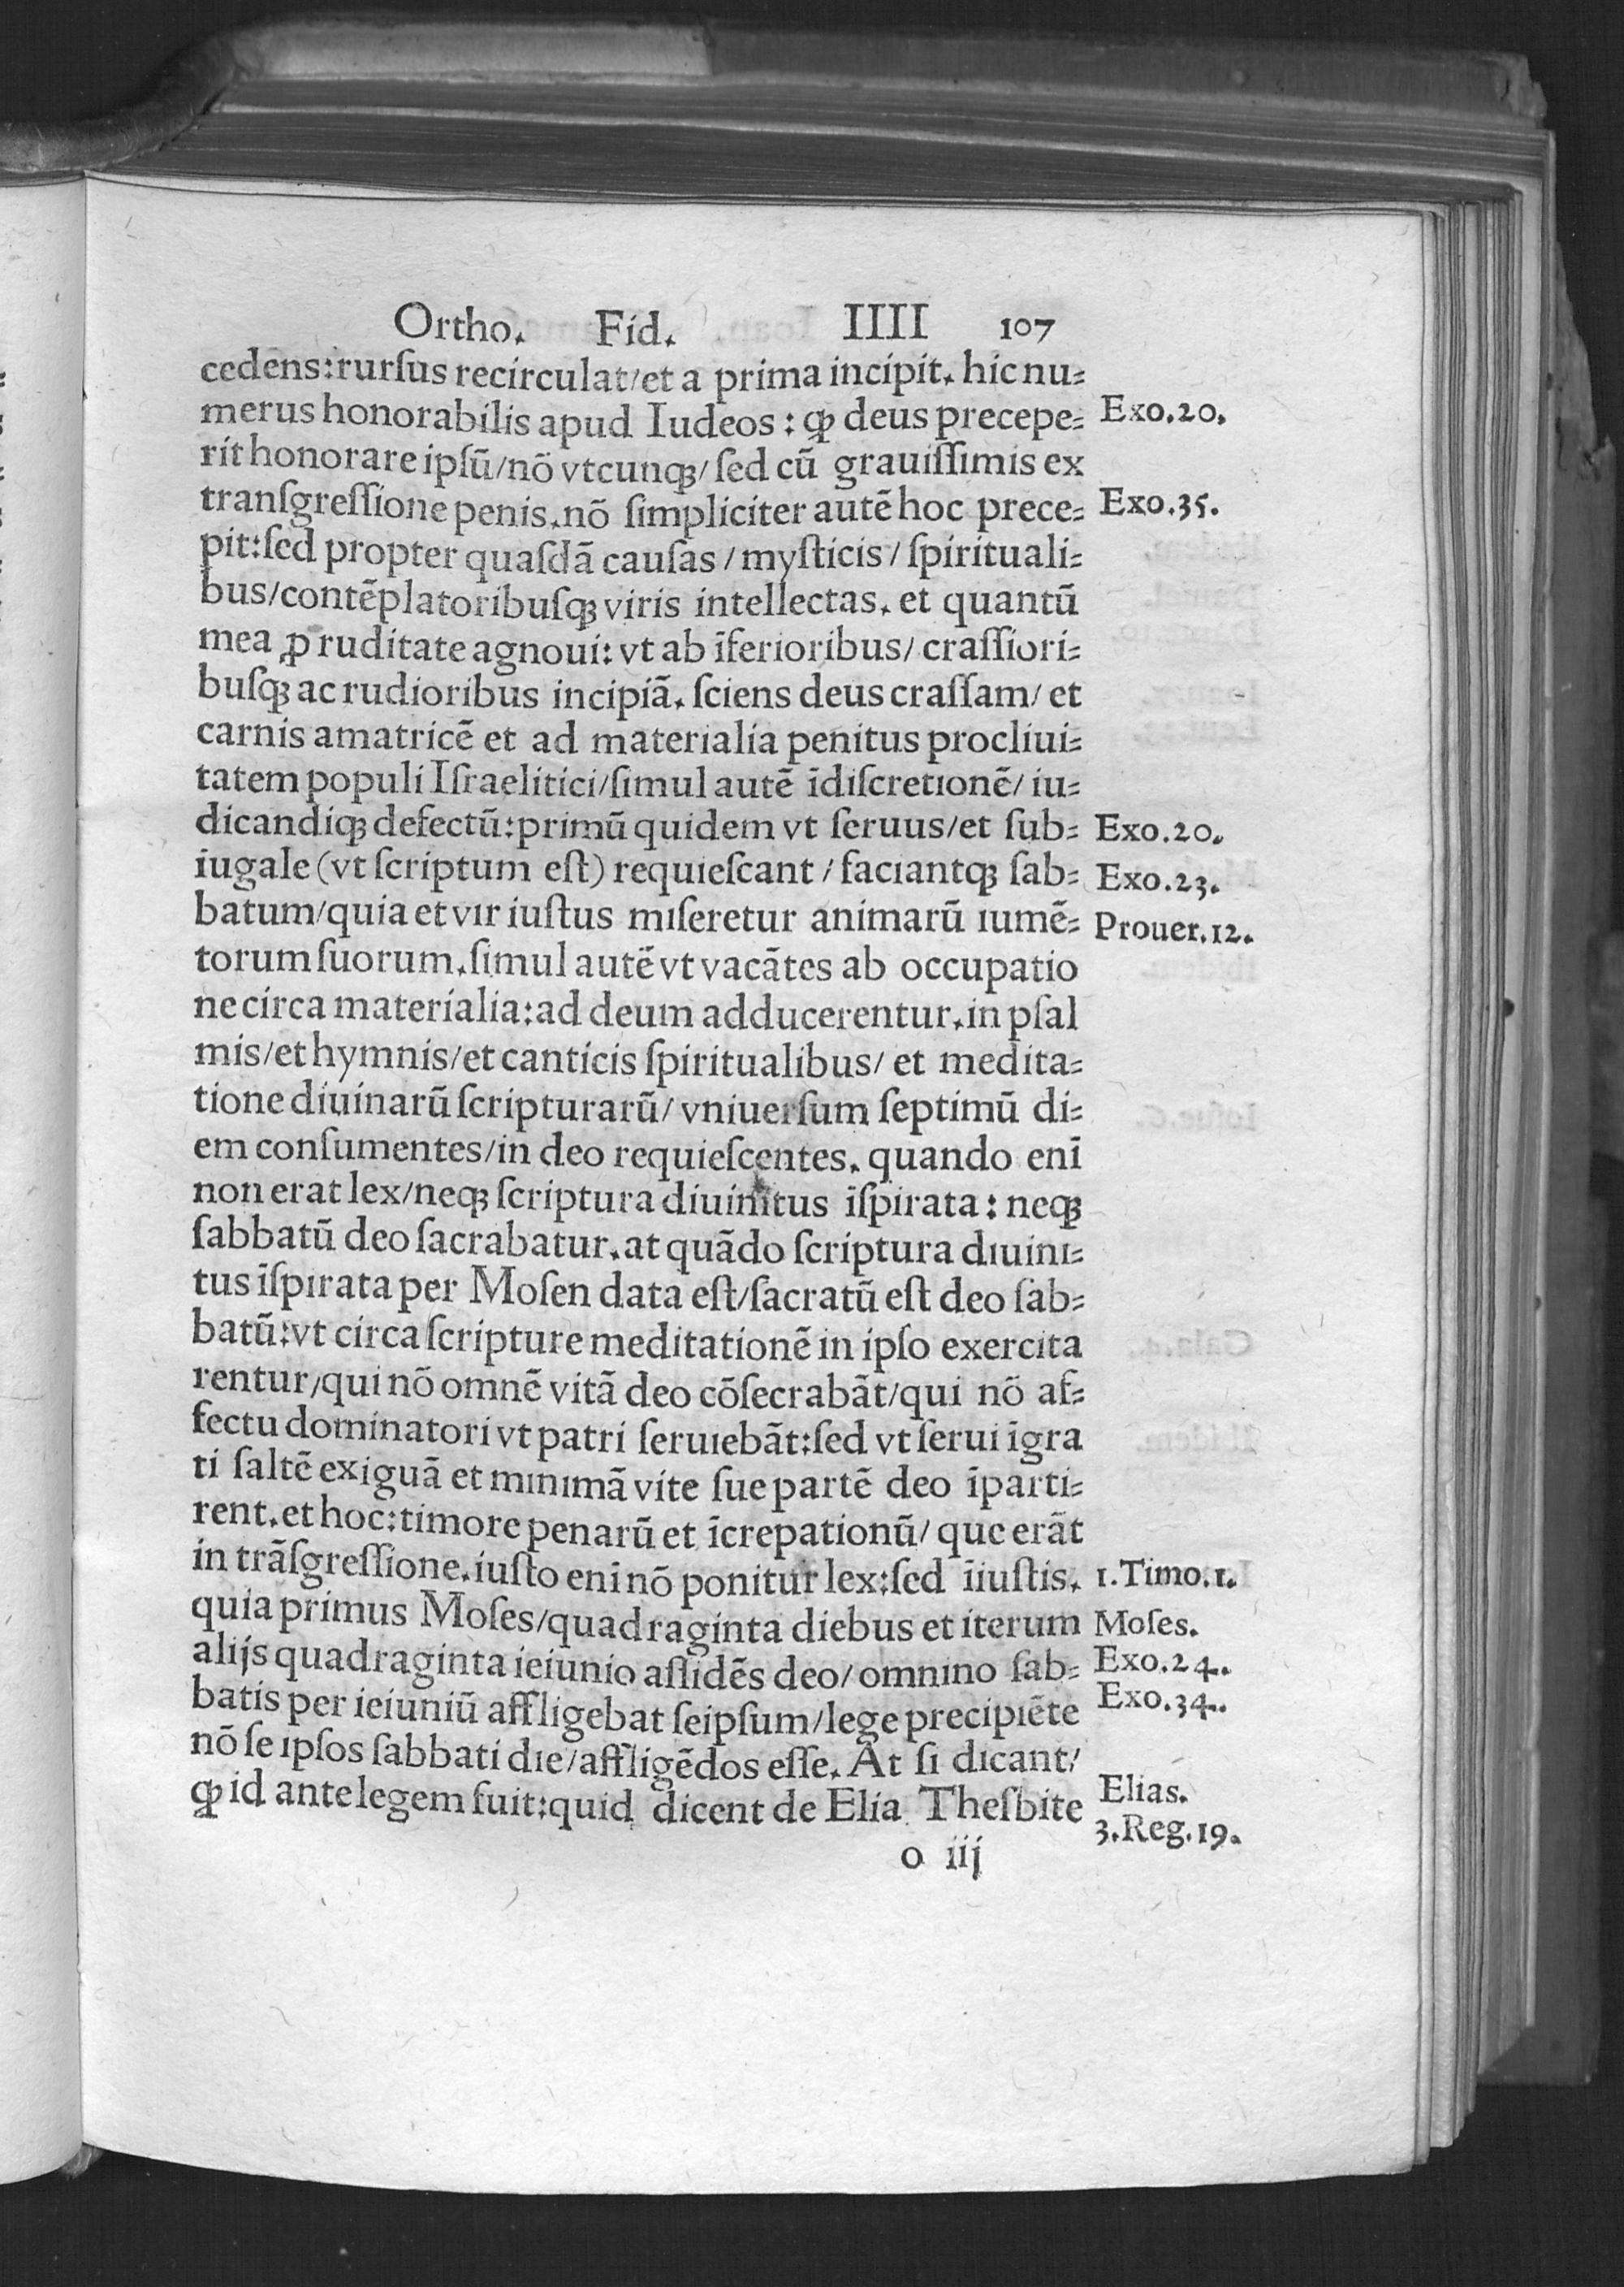 Ortho. Fid. IIII 107
cedens:rurſus recirculat/et a prima incipit. hic nu⸗
merus honorabilis apud Iudeos : ꝙ deus precepe⸗ Exo.20.
rit honorare ipſū/nō vtcunqꝫ/ ſed cū grauiſſimis ex
tranſgreſſione penis.nō ſimpliciter autē hoc prece⸗ Exo.35.
pit:ſed propter quaſdā cauſas / myſticis / ſpirituali⸗
bus/contēplatoribuſqꝫ viris intellectas. et quantū
mea ꝓ ruditate agnoui: vt ab īferioribus/ craſſiori⸗
buſqꝫ ac rudioribus incipiā. ſciens deus craſſam/ et
carnis amatricē et ad materialia penitus procliui⸗
tatem populi Iſraelitici/ſimul autē īdiſcretionē/ iu⸗
dicandiqꝫ defectū:primū quidem vt ſeruus/et ſub⸗ Exo.20.
iugale (vt ſcriptum eſt) requieſcant / faciantqꝫ ſab⸗ Exo.23.
batum/quia et vir iuſtus miſeretur animarū iumē⸗ Prouer.12.
torum ſuorum.ſimul autē vt vacātes ab occupatio
ne circa materialia:ad deum adducerentur.in pſal
mis/et hymnis/et canticis ſpiritualibus/ et medita⸗
tione diuinarū ſcripturarū/ vniuerſum ſeptimū di⸗
em conſumentes/in deo requieſcentes. quando enī
non erat lex/neqꝫ ſcriptura diuinitus īſpirata: neqꝫ
ſabbatū deo ſacrabatur.at quādo ſcriptura diuini⸗
tus īſpirata per Moſen data eſt/ſacratū eſt deo ſab⸗
batū:vt circa ſcripture meditationē in ipſo exercita
rentur/qui nō omnē vitā deo cōſecrabāt/qui nō af⸗
fectu dominatori vt patri ſeruiebāt:ſed vt ſerui īgra
ti ſaltē exiguā et minimā vite ſue partē deo īparti⸗
rent.et hoc:timore penarū et īcrepationū/ que erāt
in trāſgreſſione.iuſto eni nō ponitur lex:ſed īiuſtis. 1.Timo.1.
quia primus Moſes/quadraginta diebus et iterum Moſes.
alijs quadraginta ieiunio aſſidēs deo/ omnino ſab⸗ Exo.24.
batis per ieiuniū affligebat ſeipſum/lege precipiēte Exo.34.
nō ſe ipſos ſabbati die/affligēdos eſſe. At ſi dicant/
ꝙ id ante legem fuit:quid dicent de Elia Theſbite Elias.
3.Reg.19.
o iij